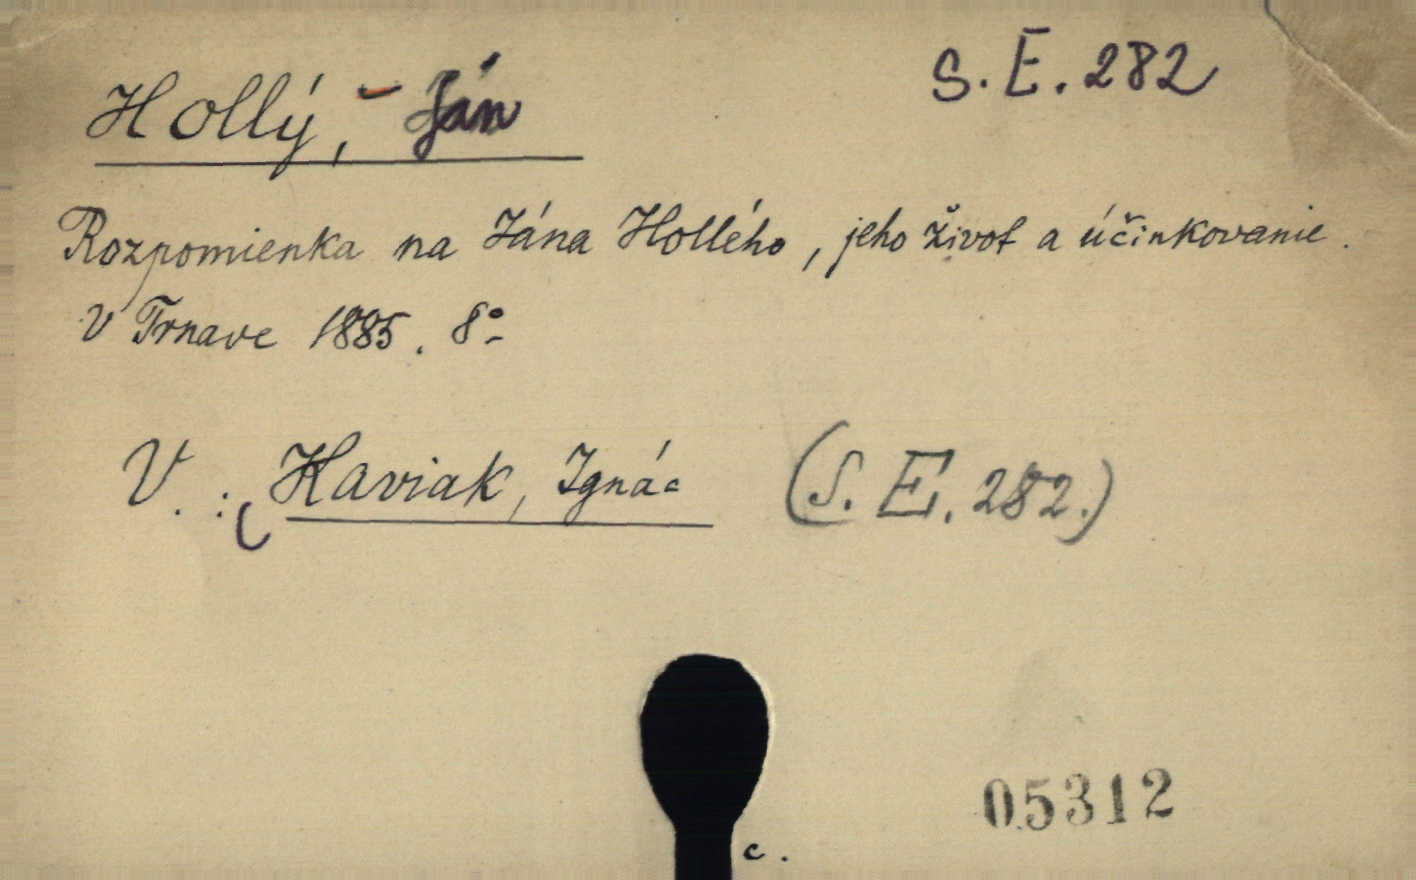 S. E. 282
Hollý, - Ján
Rozpomienka na Jána Hollého, jeho život a účinkovanie.
V Trnave 1885. 8°
V. : Haviak, Ignác (S. E. 282.)
05312
c.